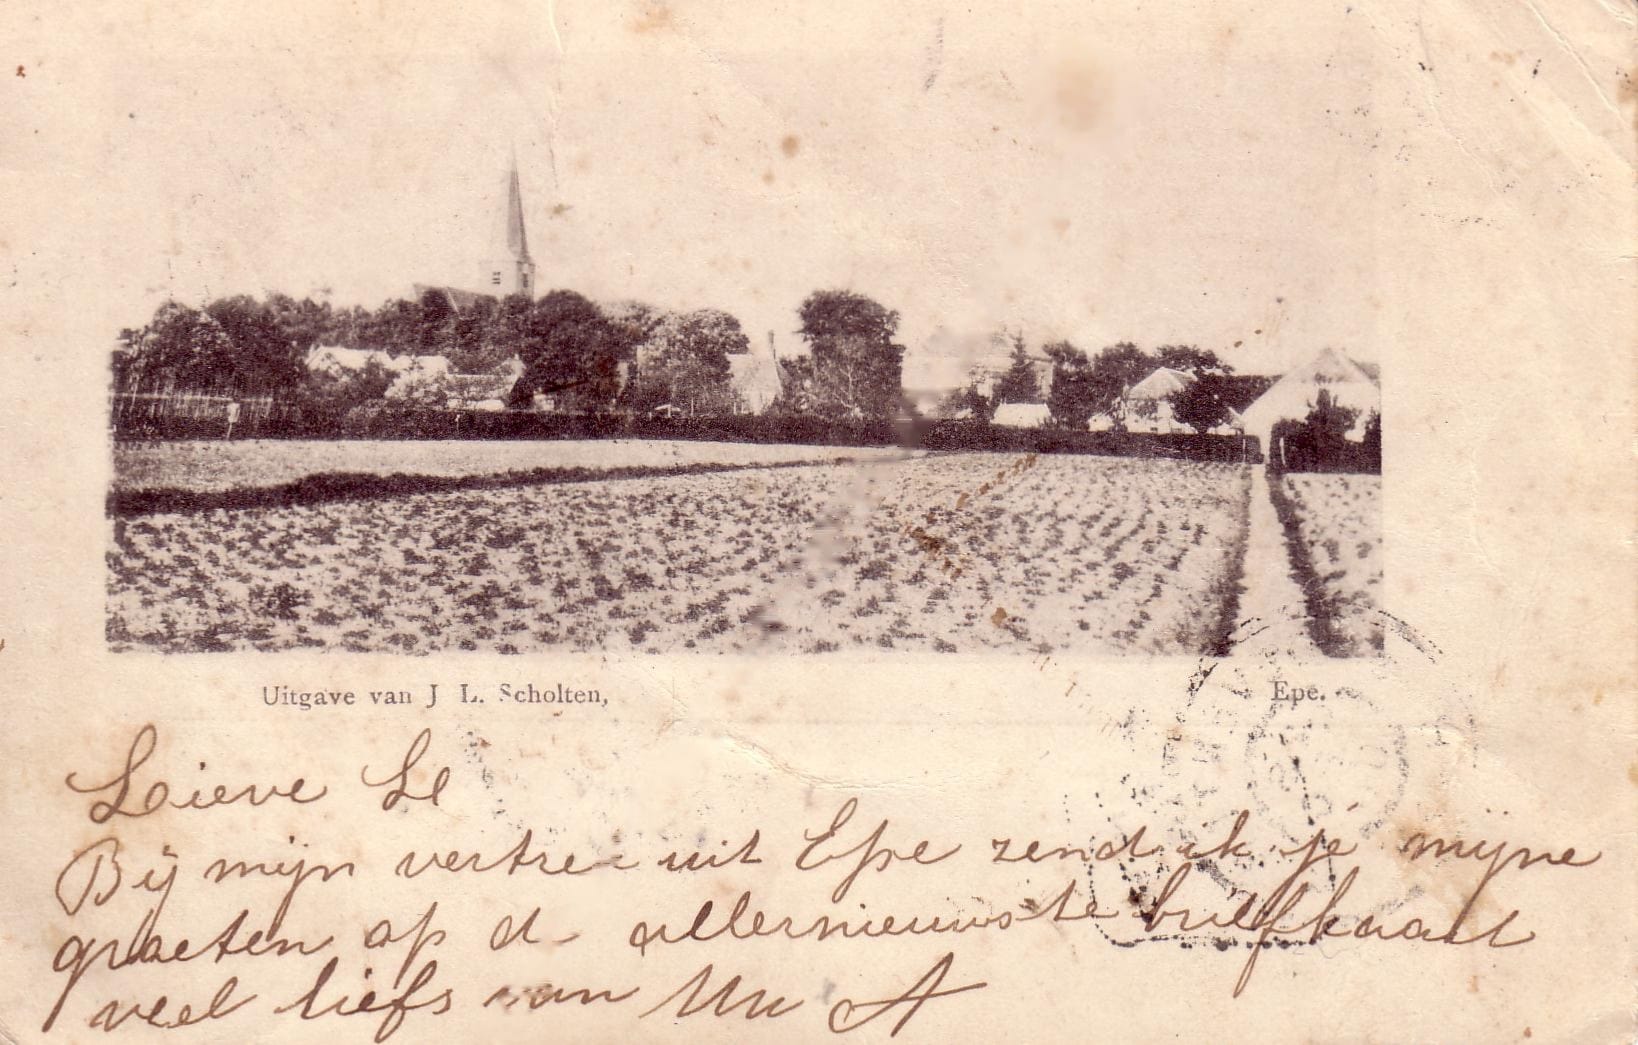 Uitgave van J L. Scholten,
Epe.
Lieve
Bij mijn vertrek uit Epe zend ik je mijne
groeten op de allernieuwste briefkaart
veel liefs van